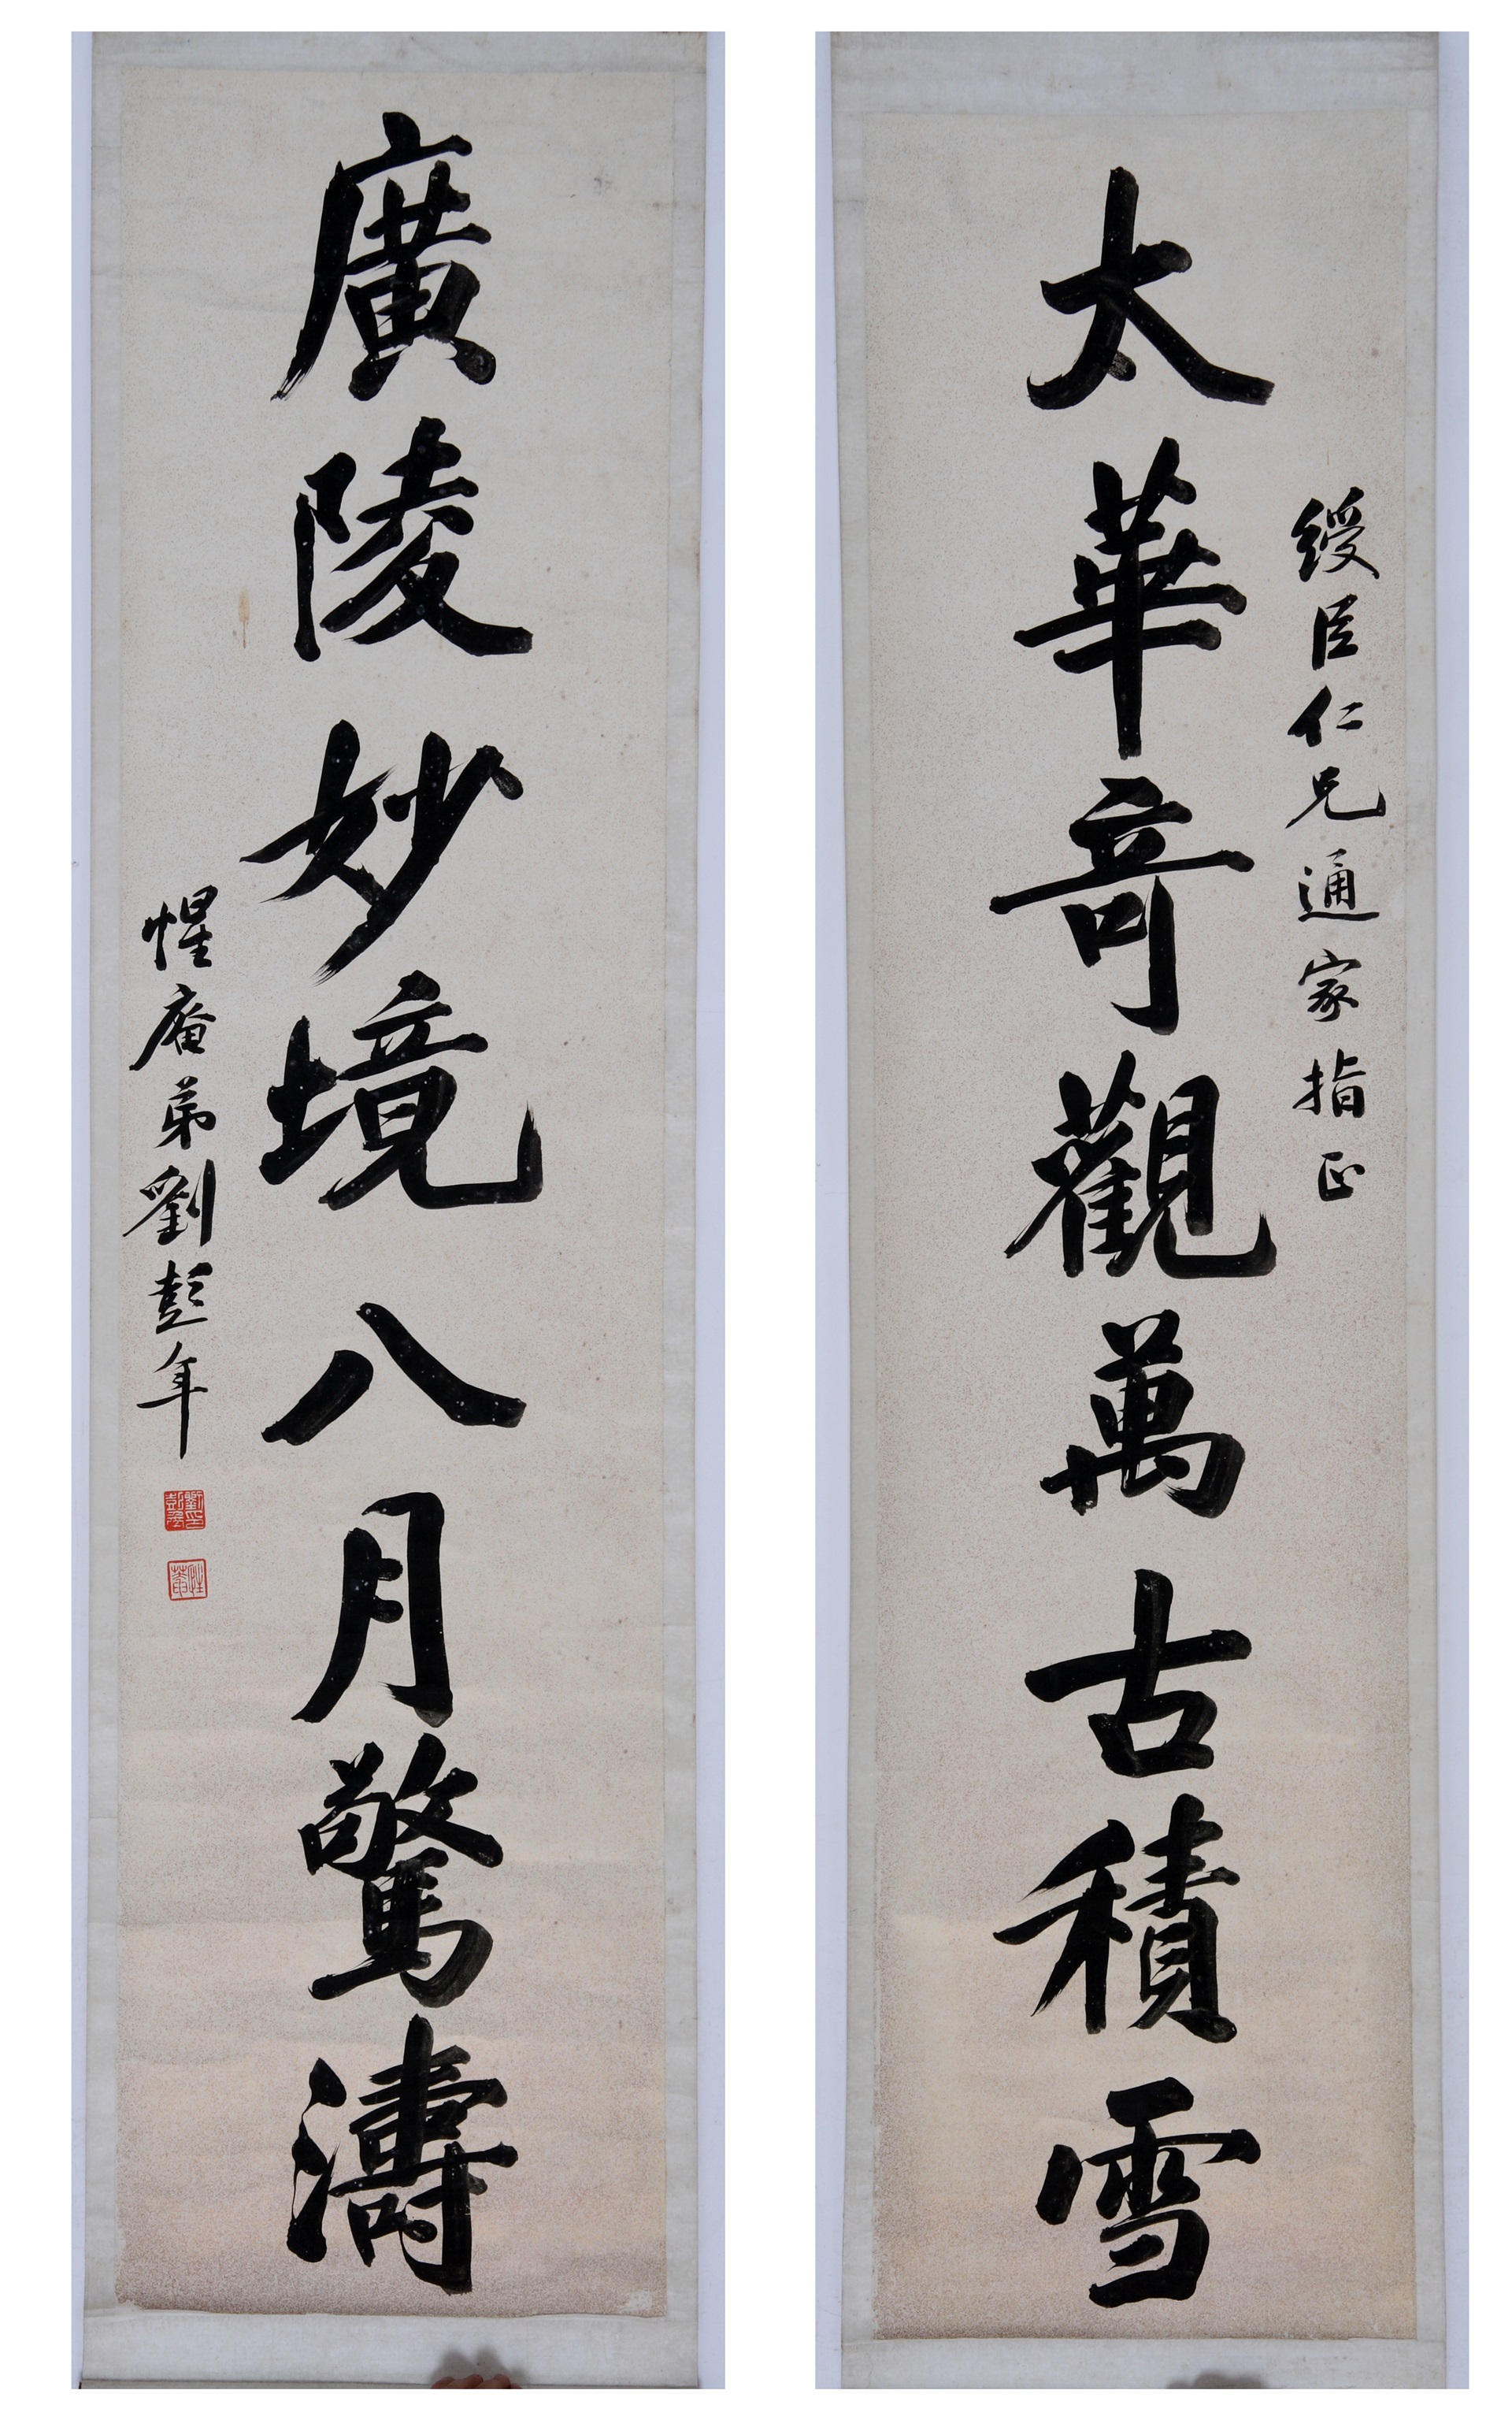 綬臣仁兄通家指正
太華奇觀萬古積雪
廣陵妙境八月驚濤
惺庵弟劉彭年